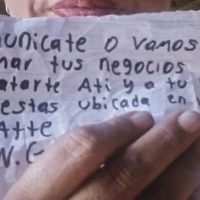 unicate o vamos
mar tus negocios
atarte Ati y a tu
estas ubicada en
Atte
N.G